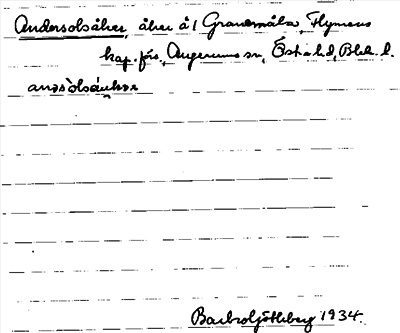 Andersolsåker, åker å 1 Granemåla, Flymens
kap. förs., Augerums sn, Östra hd, Blek. l.
Göthberg 1934.